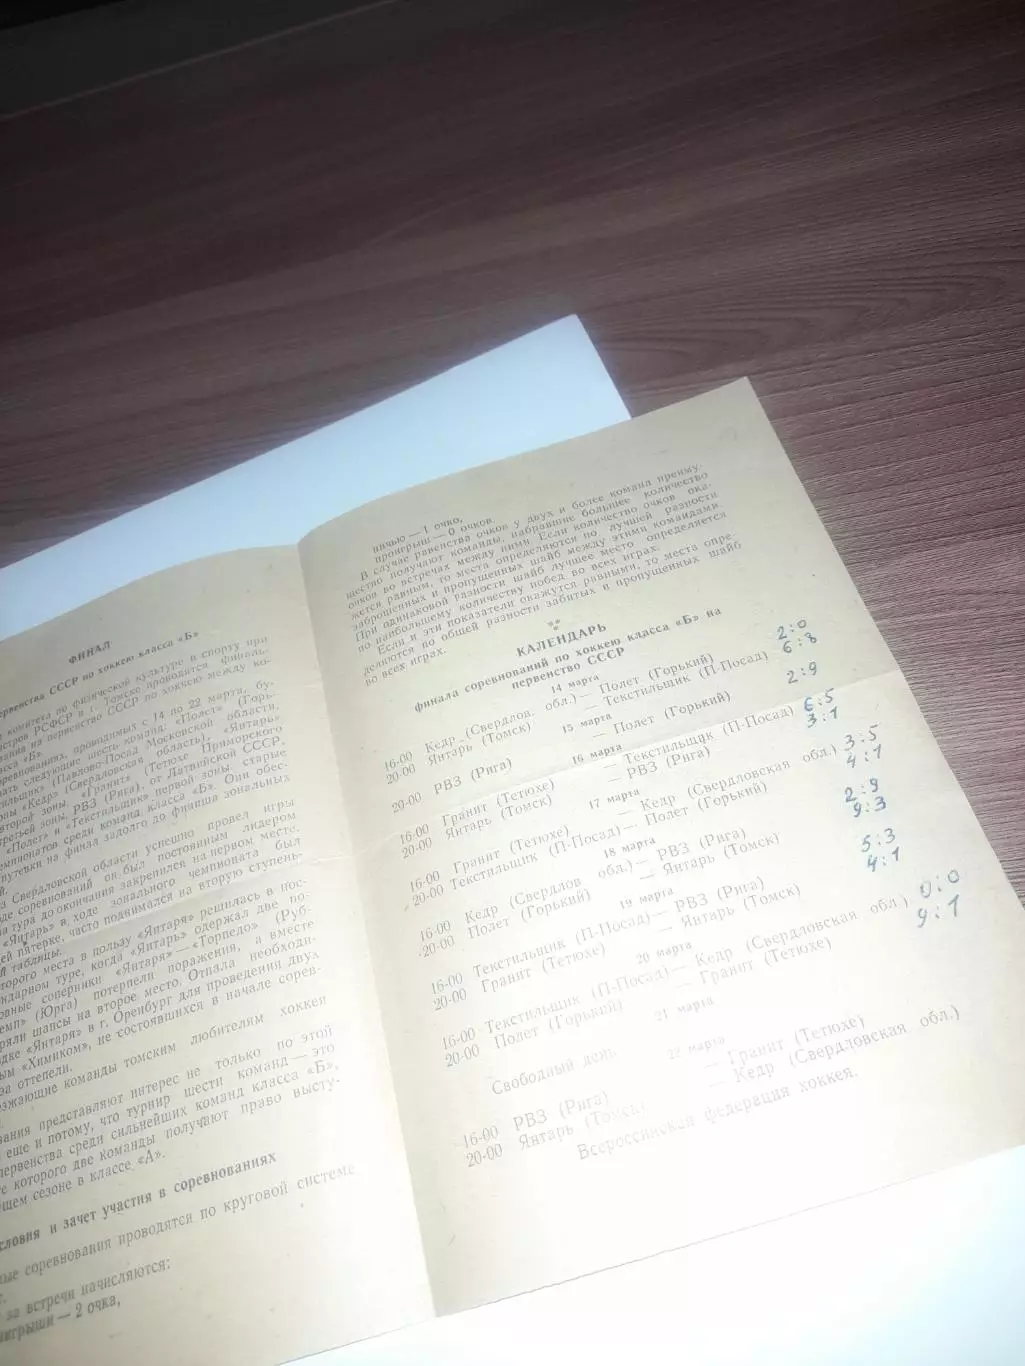 ФИНАЛ
первенства СССР по хоккею класса «Б»
комитета по физической культуре и спорту при
РСФСР в г. Томске проводятся финаль-
на первенство СССР по хоккею между ко-
«Б».
соревнованиях, проводимых с 14 по 22 марта, бу-
следующие шесть команд: «Полет» (Горь-
(Павлово-Посад Московской области,
«Кедр» (Свердловская область), «Янтарь»
второй зоны, «Гранит» (Тетюхе Приморского
третьей зоны, РВЗ (Рига), от Латвийской ССР.
«Полет» и «Текстильщик» первой зоны старые
среди команд класса «Б». Они обес-
путевки на финал задолго до финиша зональных
Свердловской области успешно провел игры
соревнований он был постоянным лидером
тура до окончания закрепился на первом месте.
«Янтарь» в ходе зонального чемпионата был
пятерке, часто поднимался на вторую ступень-
таблицы.
второго места в пользу «Янтаря» решилась в пос-
туре, когда «Янтарь» одержал две по-
соперники «Янтаря» — «Торпедо» (Руб-
(Юрга) потерпели поражения, а вместе
шансы на второе место. Отпала необходи-
«Янтаря» в г. Оренбург для проведения двух
«Химиком», не состоявшихся в начале сорев-
оттепели.
команды томским любителям хоккея
представляют интерес не только по этой
еще и потому, что турнир шести команд — это
первенства среди сильнейших команд класса «Б»,
которого две команды получают право высту-
сезоне в классе «А».
условия и зачет участия в соревнованиях
соревнования проводятся по круговой системе
за встречи начисляются:
выигрыши — 2 очка,
ничью — 1 очко,
проигрыш — 0 очков.
В случае равенства очков у двух и более команд преиму-
щество получают команды, набравшие большее количество
очков во встречах между ними Если количество очков ока-
жется равным, то места определяются по лучшей разности
заброшенных и пропущенных шайб между этими командами.
При одинаковой разности шайб лучшее место определяется
по наибольшему количеству побед во всех играх.
Если и эти показатели окажутся равными, то места опре-
деляются по общей разности забитых и пропущенных шайб
во всех играх.
КАЛЕНДАРЬ
финала соревнований по хоккею класса «Б» на
первенство СССР
14 марта
16-00 Кедр (Свердлов. обл.) — Полет (Горький) 2:0
20-00 Янтарь (Томск) — Текстильщик (П-Посад) 6:8
15 марта
20-00 РВЗ (Рига) — Полет (Горький) 2:9
16 марта
16-00 Гранит (Тетюхе) — Текстильщик (П-Посад) 6:5
20-00 Янтарь (Томск) — РВЗ (Рига) 3:1
17 марта
16-00 Гранит (Тетюхе) — Кедр (Свердловская обл.) 3:5
20-00 Текстильщик (П-Посад) — Полет (Горький) 4:1
18 марта
16-00 Кедр (Свердлов обл.) — РВЗ (Рига) 2:9
20-00 Полет (Горький) — Янтарь (Томск) 9:3
19 марта
16-00 Текстильщик (П-Посад) — РВЗ (Рига) 5:3
20-00 Гранит (Тетюхе) — Янтарь (Томск) 4:1
20 марта
16-00 Текстильщик (П-Посад) — Кедр (Свердловская обл.) 0:0
20-00 Полет (Горький) — Гранит (Тетюхе) 9:1
21 марта
Свободный день
22 марта
16-00 РВЗ (Рига) — Гранит (Тетюхе)
20-00 Янтарь (Томск) — Кедр (Свердловская обл.)
Всероссийская федерация хоккея.